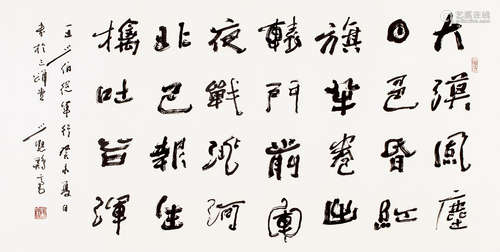 大漠風塵
日色昏紅
旗半卷出
轅門前軍
夜戰洮河
北已報生
擒吐谷渾
王少伯從軍行癸未夏日
書於三堂